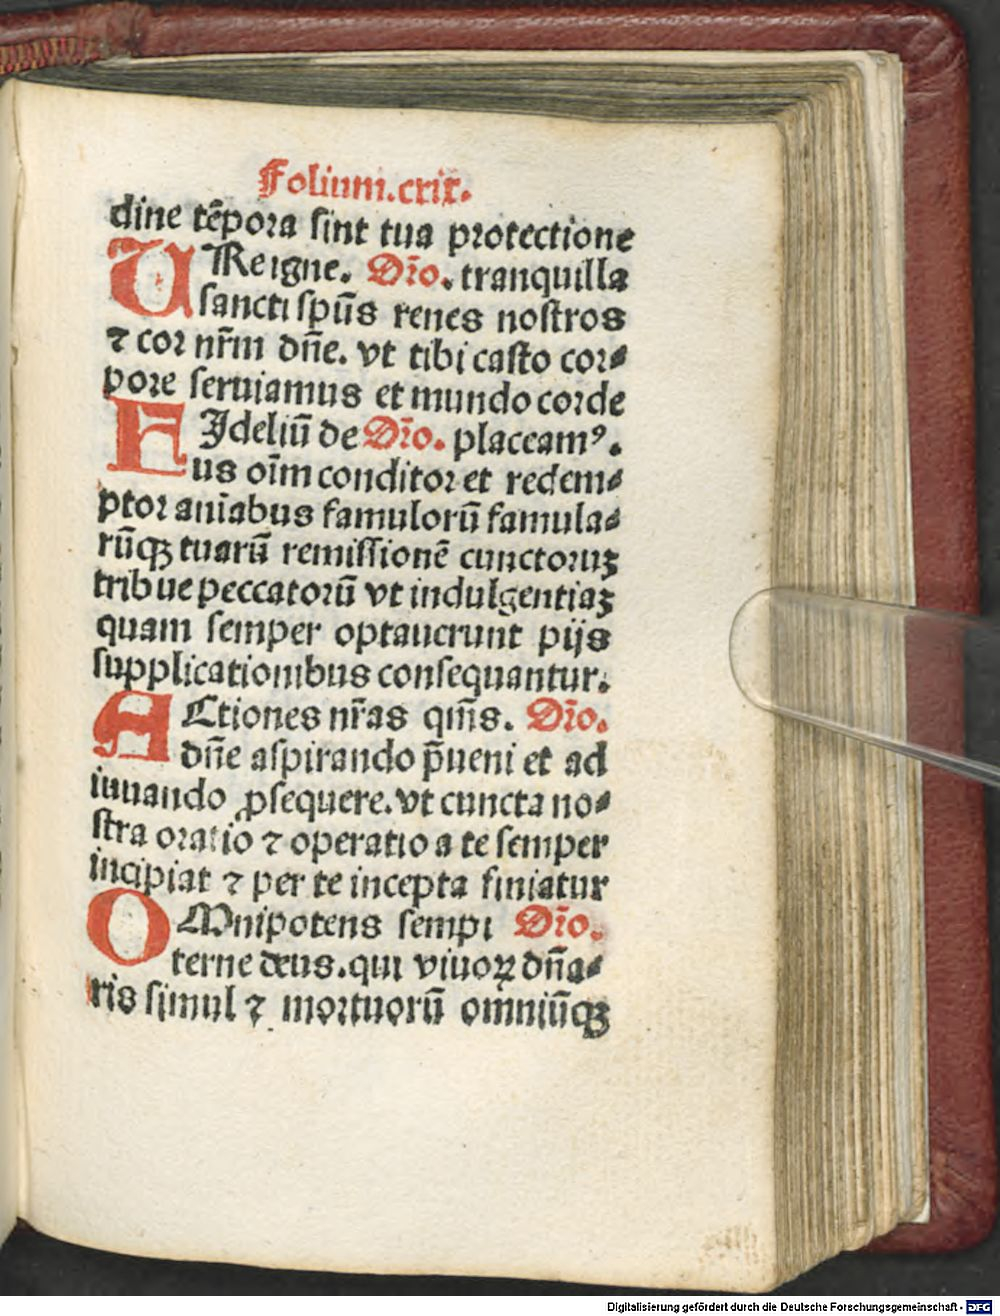 Folium.cxix.
dine tẽpora ſint tua protectione
URe igne. Orõ. tranquilla
ſancti ſpũs renes noſtros
⁊ coꝛ nr̃m dñe. vt tibi caſto coꝛ⸗
poꝛe ſeruiamus et mundo coꝛde
FIdeliũ de Orõ. placeamꝰ.
us oĩm conditoꝛ et redem⸗
ptoꝛ anĩabus famuloꝛũ famula⸗
rũqꝫ tuarũ remiſſionẽ cunctoꝛuꝫ
tribue peccatoꝛũ vt indulgentiaꝫ
quam ſemper optauerunt pijs
ſupplicationibus conſequantur.
ACtiones nr̃as qm̃s. Orõ.
dñe aſpirando p̃ueni et ad
iuuando ꝓſequere. vt cuncta no⸗
ſtra oꝛatio ⁊ operatio a te ſemper
incipiat ⁊ per te incepta finiatur
OMnipotens ſempi Orõ.
terne deus. qui viuoꝝ dña⸗
ris ſimul ⁊ moꝛtuoꝛũ omniũqꝫ
Digitalisierung gefördert durch die Deutsche Forschungsgemeinschaft - DFG